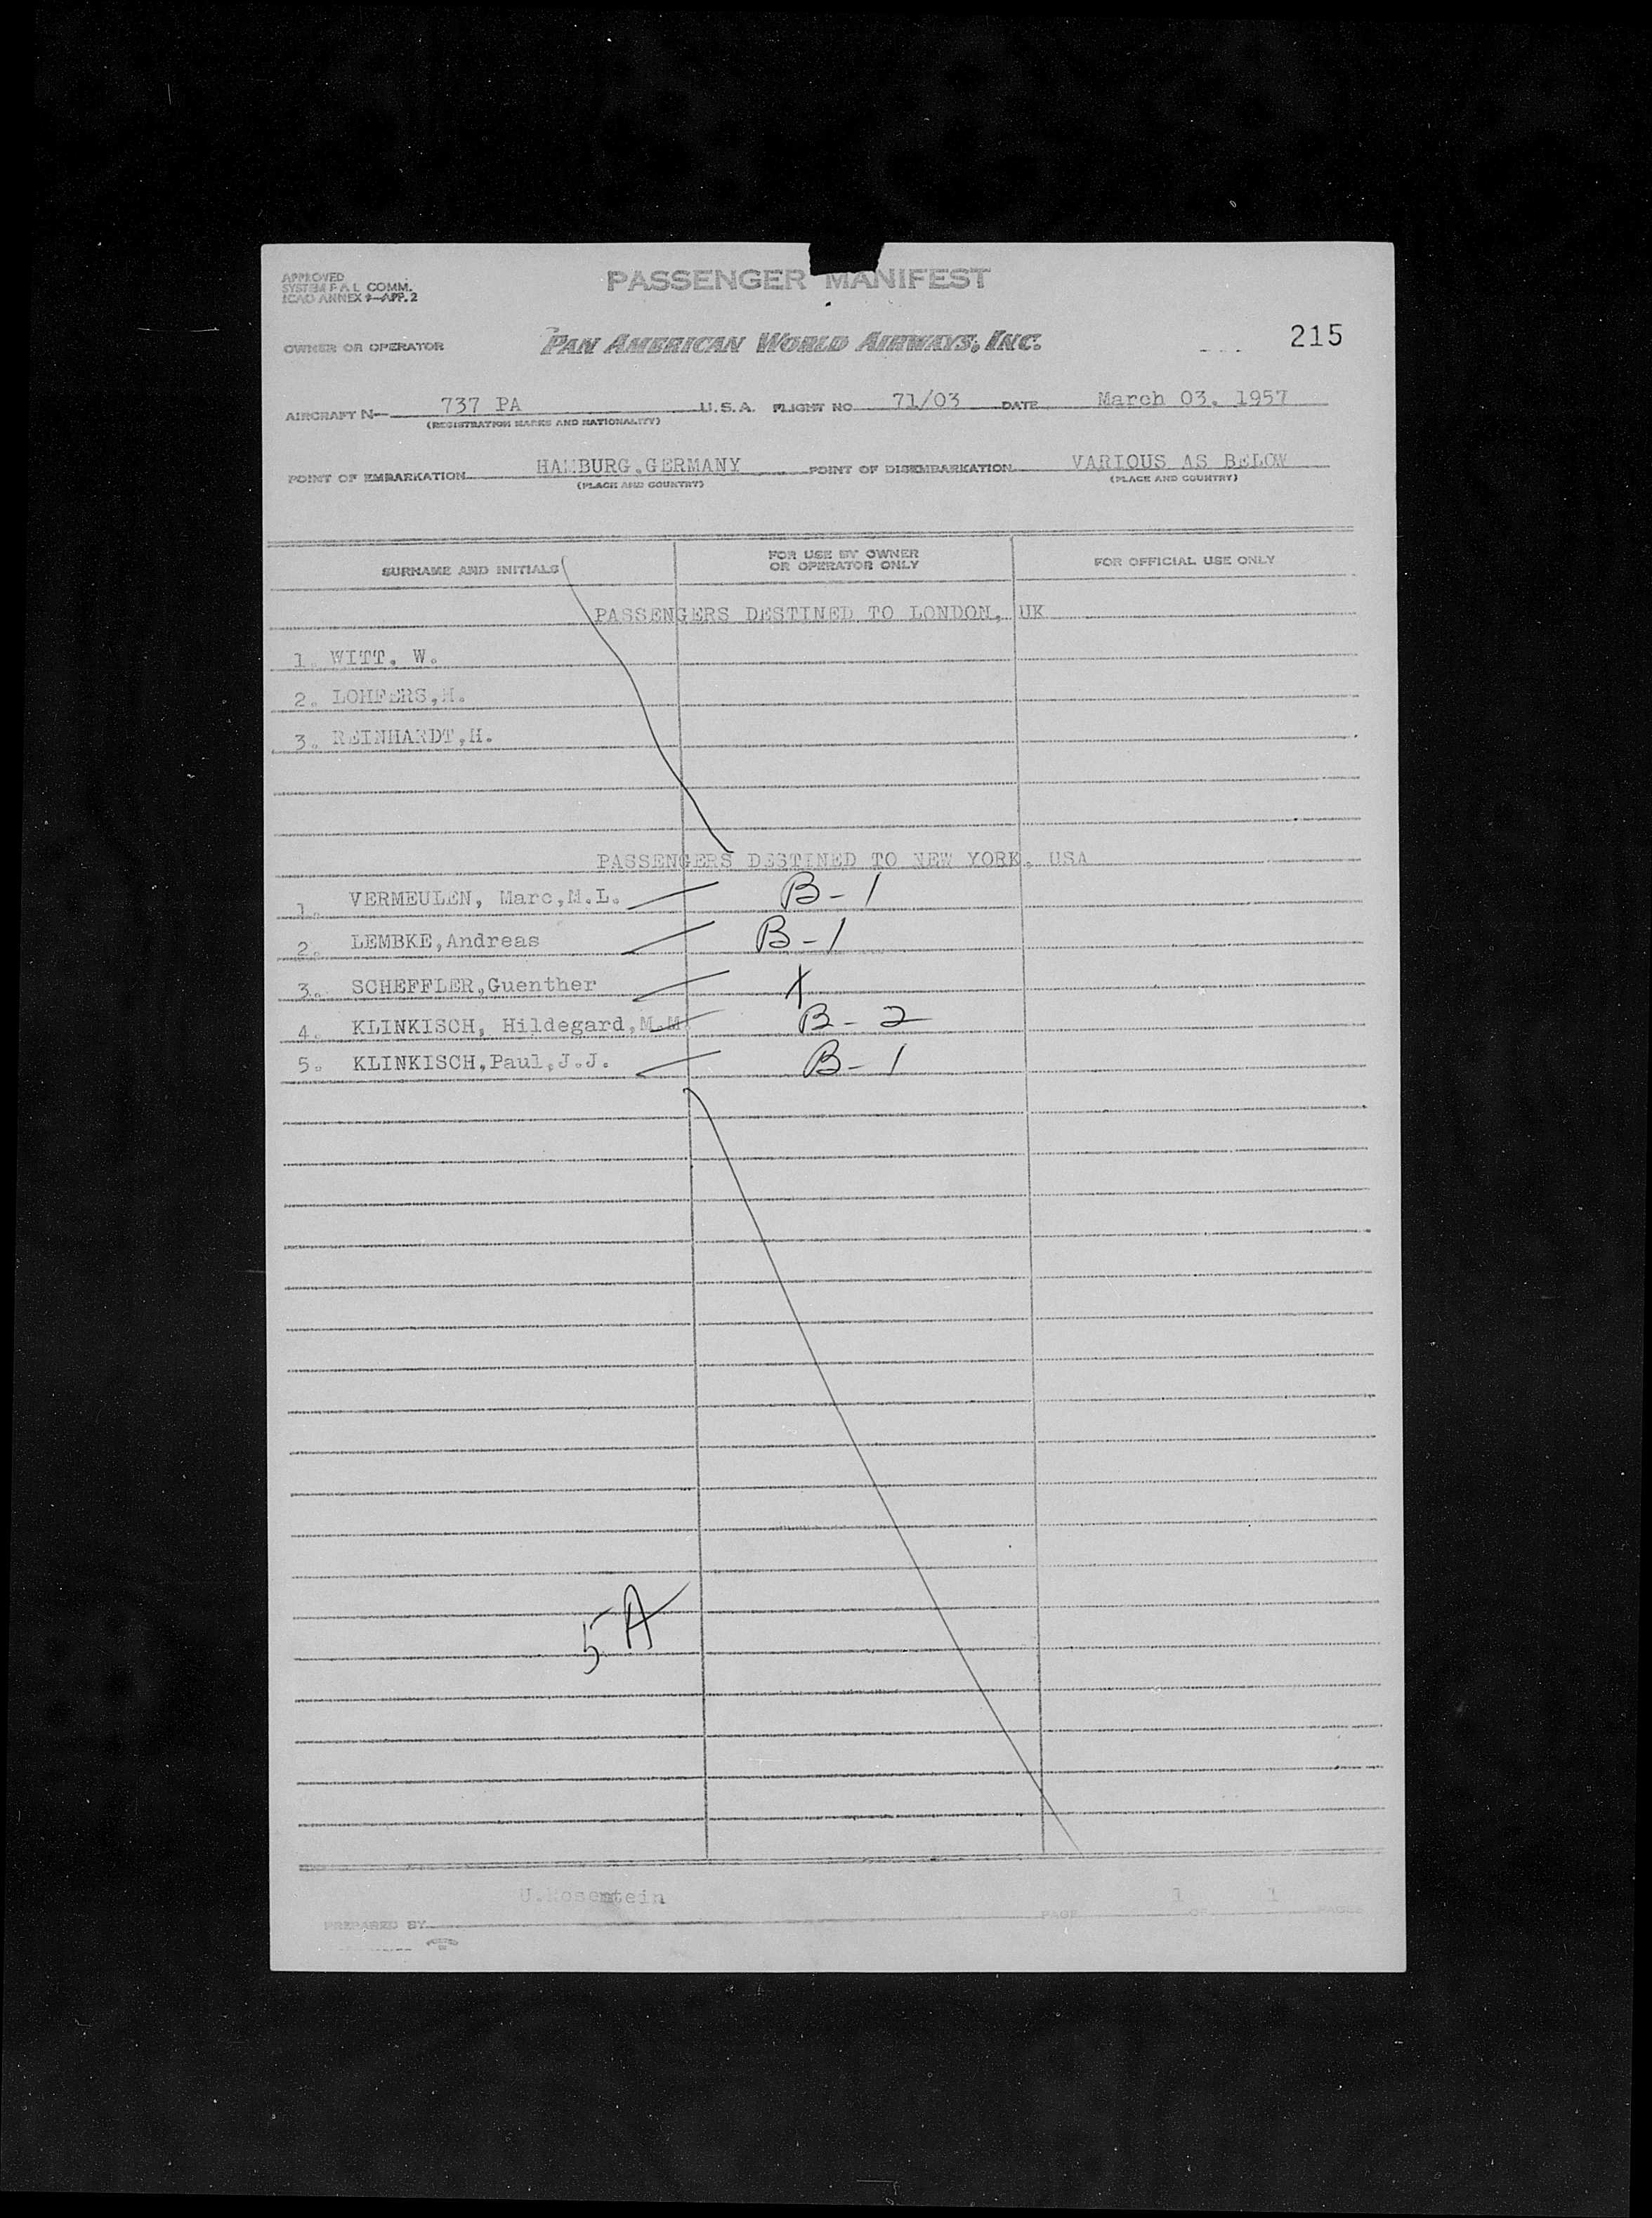 APPROVED
SYSTEM F A L COMM.
ICAO ANNEX 9—APP. 2
PASSENGER MANIFEST
OWNER OR OPERATOR PAN AMERICAN WORLD AIRWAYS, INC. 215
AIRCRAFT N— 737 PA U.S.A. FLIGHT NO 71/03 DATE March 03. 1957
(REGISTRATION MARKS AND NATIONALITY)
POINT OF EMBARKATION HAMBURG,GERMANY POINT OF DISEMBARKATION VARIOUS AS BELOW
(PLACE AND COUNTRY) (PLACE AND COUNTRY)
SURNAME AND INITIALS FOR USE BY OWNER OR OPERATOR ONLY FOR OFFICIAL USE ONLY
PASSENGERS DESTINED TO LONDON, UK
1. WITT. W.
2. LOHFERS,H.
3. REINHARDT,H.
PASSENGERS DESTINED TO NEW YORK, USA
1. VERMEULEN, Marc,M.L. B-1
2. LEMBKE,Andreas B-1
3. SCHEFFLER,Guenther X
4. KLINKISCH, Hildegard,M.M. B-2
5. KLINKISCH,Paul,J.J. B-1
5 A
PREPARED BY U. PAGE 1 OF 1 PAGES